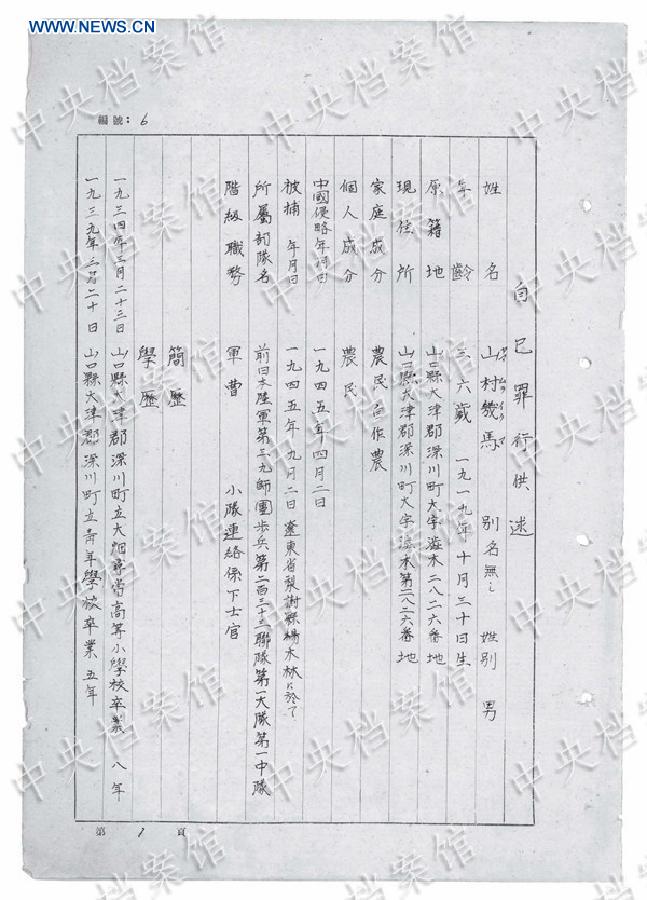 WWW.NEWS.CN
編號：6
自己罪行供述
姓名 山村幾馬 別名無シ 姓別 男
年齢 三六歳 一九一九年十月三十日生
原籍地 山口縣大津郡深川町大字澁木二八二六番地
現住所 山口縣大津郡深川町大字澁木第二八二六番地
家庭成分 農民自作農
個人成分 農民
中國侵略年月日 一九四五年四月二日
被捕年月日 一九四五年九月二日 遼東省梨樹縣楊木林ニ於テ
所屬部隊名 前日本陸軍第三九師團歩兵第二百三十三聯隊第一大隊第一中隊
階級職務 軍曹 小隊連絡係下士官
簡歷
學歷
一九三四年三月二十三日 山口縣大津郡深川町立大畑尋常高等小學校卒業 八年
一九三九年三月二十日 山口縣大津郡深川町立青年學校卒業五年
第 1 頁
中央档案馆